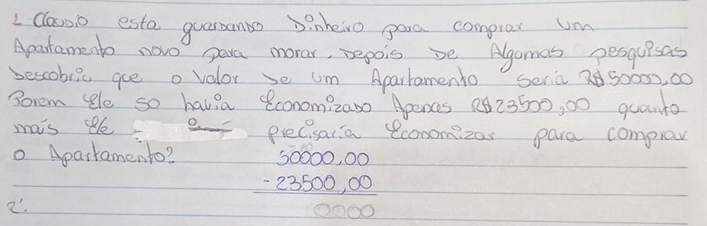 1. Claudio esta guardando Dinheiro para comprar um
Apartamento novo para morar. Depois De Algumas pesquisas
Descobriu que o Valor De um Apartamento seria R$ 50000,00
Porem Ele so havia Economizado Apenas R$ 23500,00 quanto
mais Ele precisaria Economizar para comprar
o Apartamento? 50000,00
- 23500,00
2. 0000